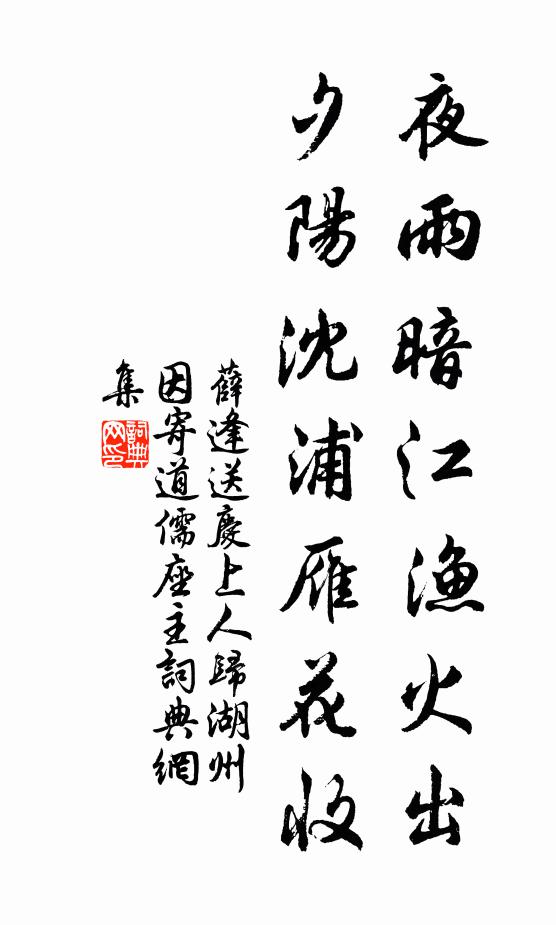 夜雨暗江漁火出
夕陽沈浦雁花收
薛逢送慶上人歸湖州
因寄道儒座主詞典網
集
詞典
网印